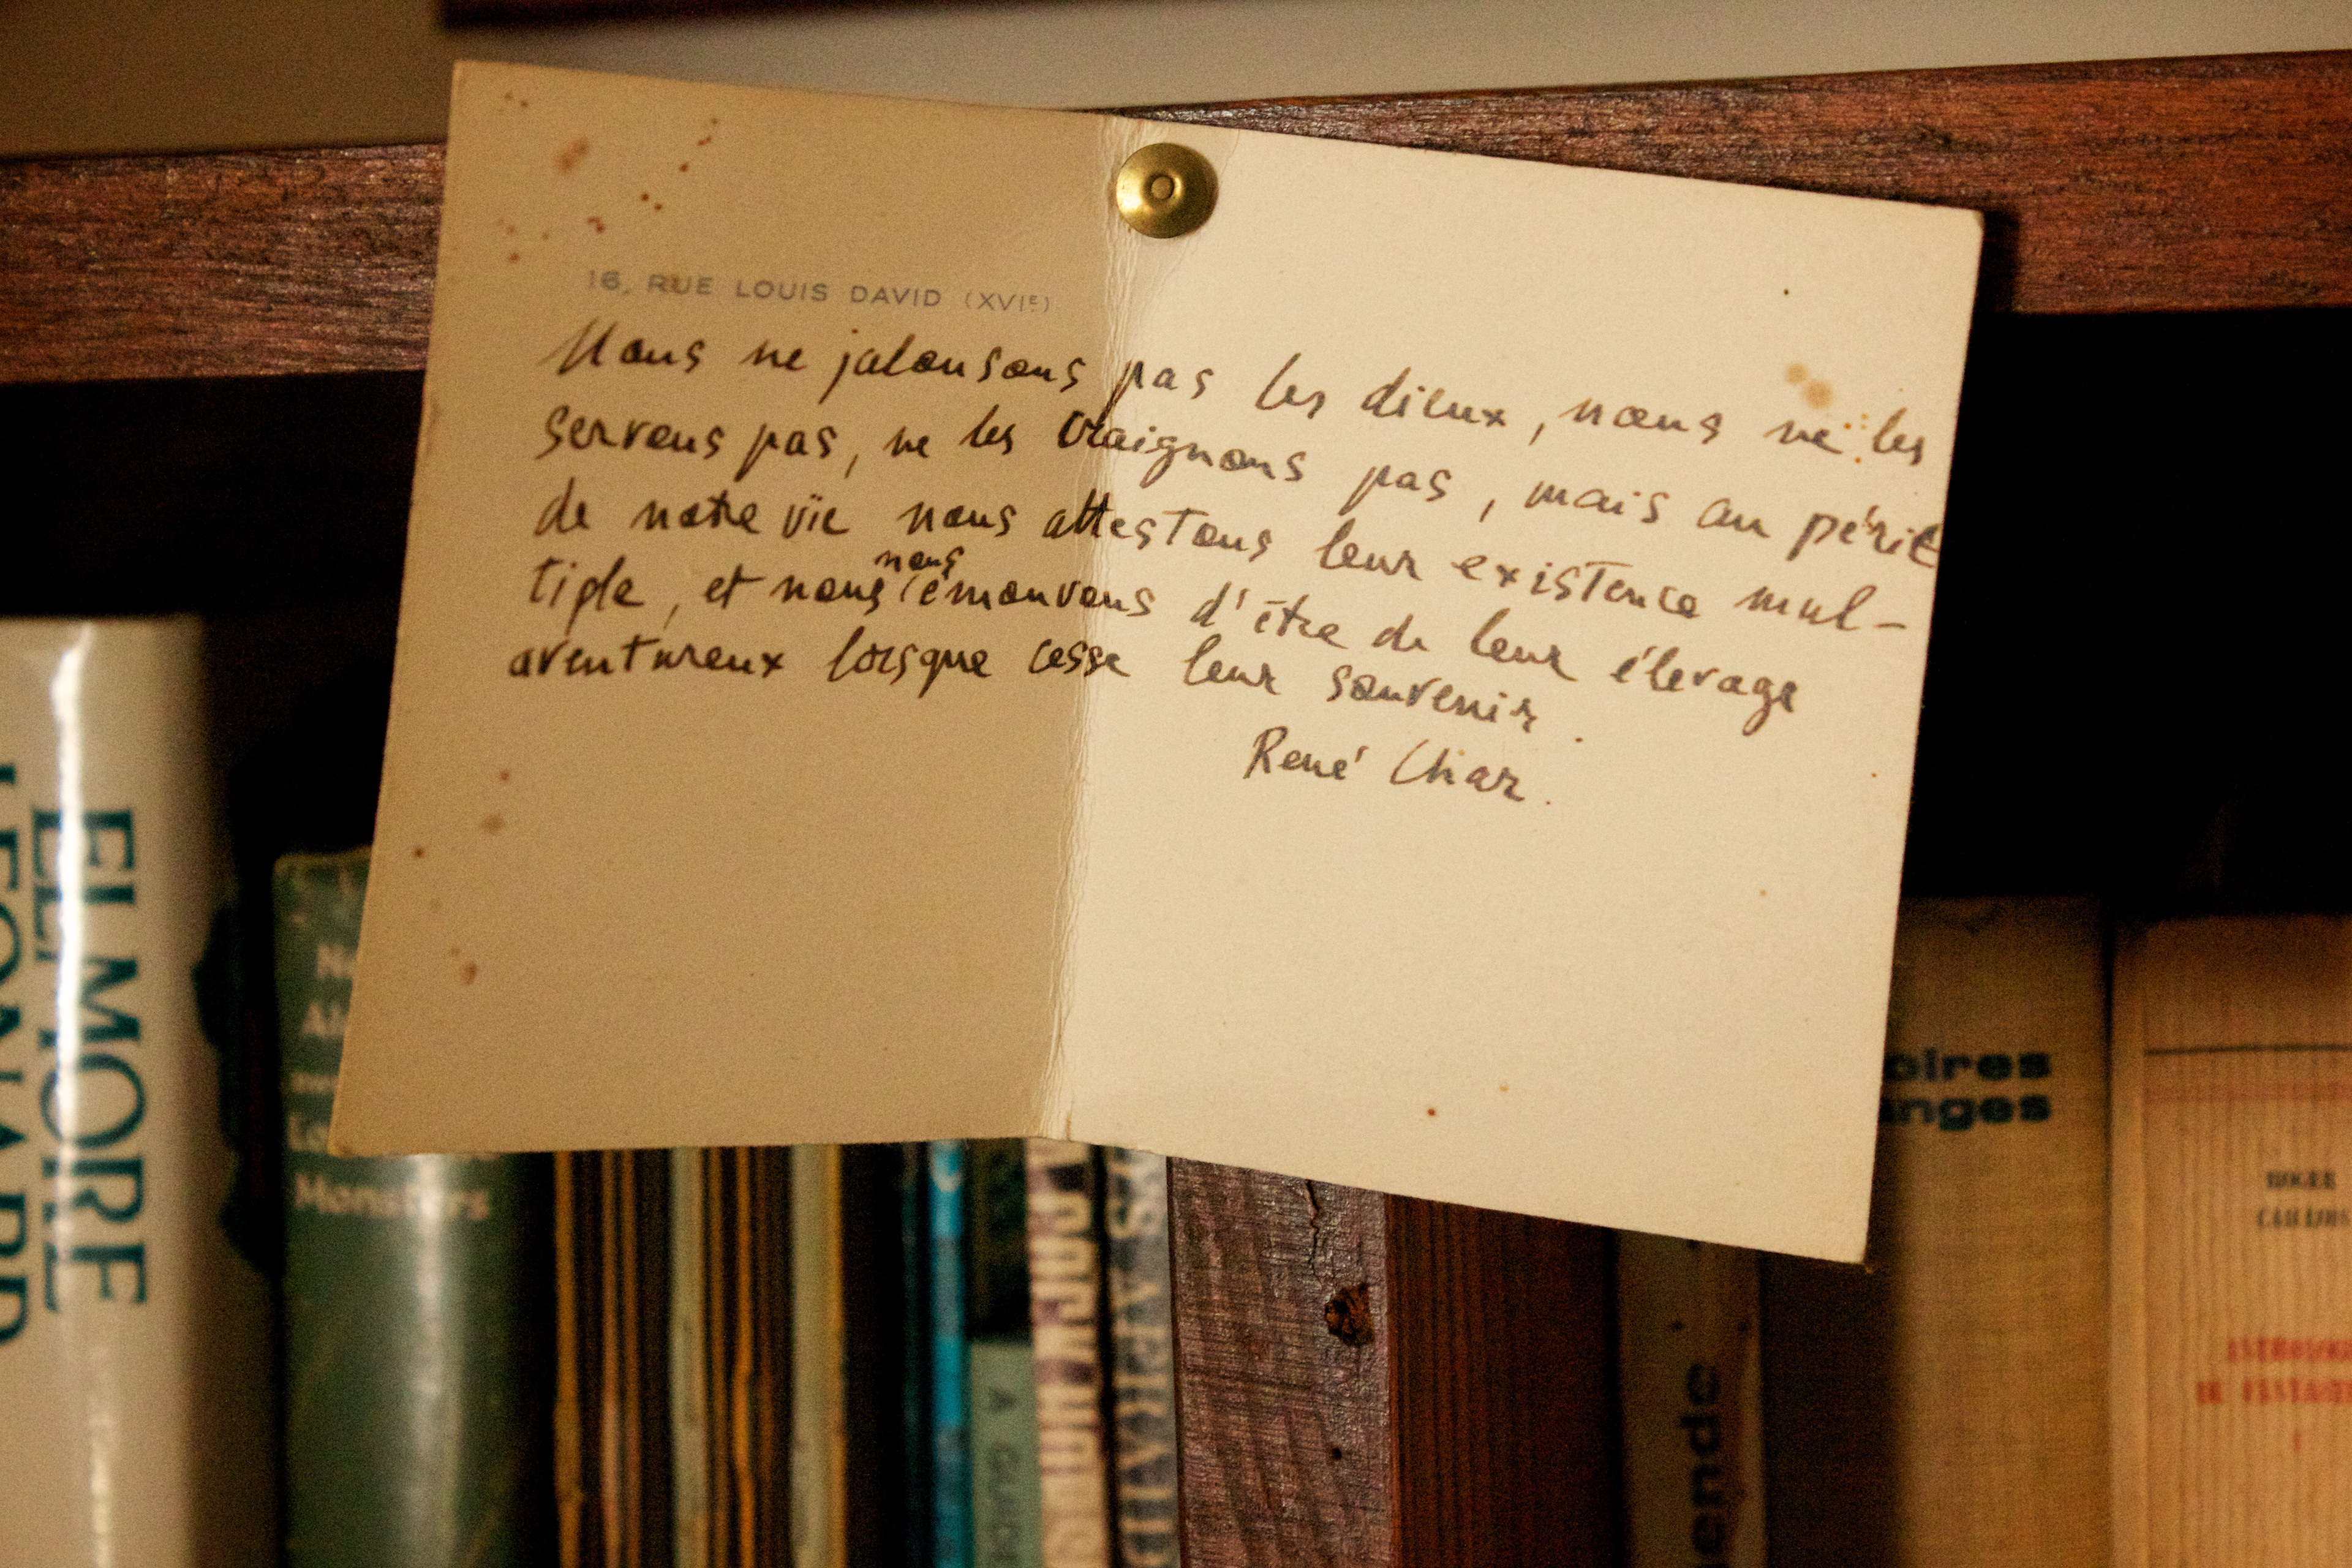 16, RUE LOUIS DAVID (XVIE)
Nous ne jalousons pas les dieux, nous ne les
servons pas, ne les craignons pas, mais au péril
de notre vie nous attestons leur existence mul-
nous
tiple, et nous émouvons d'être de leur élevage
aventureux lorsque cesse leur souvenir.
René Char.
ELMORE
LEONARD
Monsters
oires
anges
ROGER
CAILLOIS